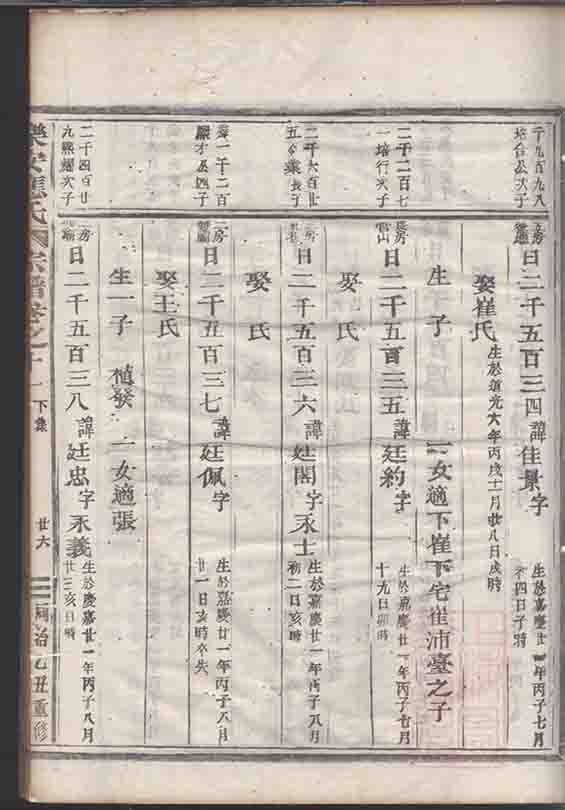 千九百九八
培台公次子
房
日二千五百三四諱佳景字
生於嘉慶廿一年丙子七月
四日子時
娶崔氏
生於道光六年丙戌十一月廿八日戌時
生子
二女適下崔下宅崔沛臺之子
二千二百七
一培行次子
房
日二千五百三五諱廷約字
生於嘉慶廿一年丙子七月
十九日卯時
娶氏
二千六百廿
五 業長子
日二千五百三六諱廷閣字永士
生於嘉慶廿一年丙子八月
初二日亥時
娶氏
二千一百
才公四子
二房
日二千五百三七諱廷佩字
生於嘉慶廿一年丙子八月
廿一日亥時卒失
娶王氏
生一子 植發 一女適張
二千四百廿
九熙耀次子
房
日二千五百三八諱廷忠字永義
生於慶嘉廿一年丙子八月
廿三亥日時
樂安 氏 宗譜卷之十一 下集
廿六
同治乙丑重修